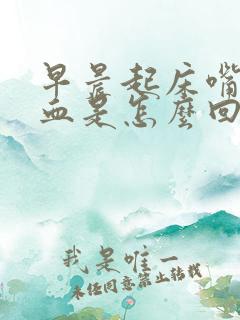 早晨起床嘴
血是怎么回
我是唯一
未经同意禁止转载